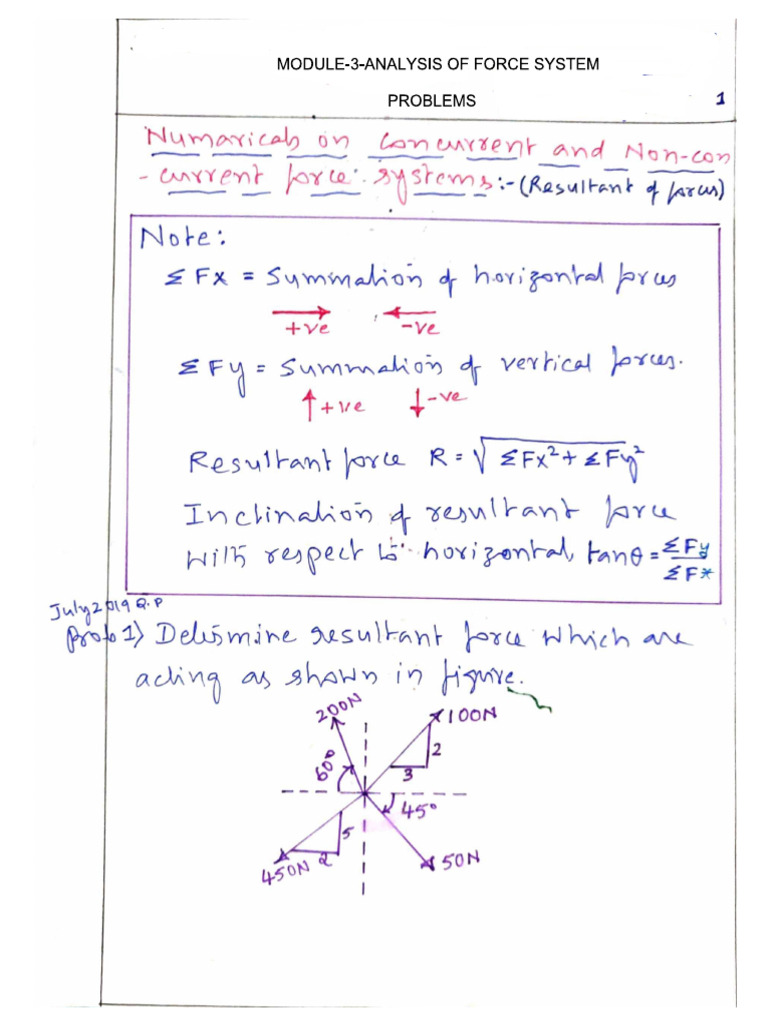 MODULE-3-ANALYSIS OF FORCE SYSTEM
PROBLEMS
1
Numaricals on Concurrent and Non-con
-current force systems:-(Resultant of forces)
Note:
ΣFx = Summation of horizontal forces
+ve -ve
ΣFy = Summation of vertical forces.
+ve -ve
Resultant force R = √ΣFx²+ΣFy²
Inclination of resultant force
with respect to horizontal, tanθ = ΣFy
ΣFx
July 2019 Q.P
Prob 1) Determine resultant force which are
acting as shown in figure.
200N 100N
60° 2
3
45°
5
450N 2 50N